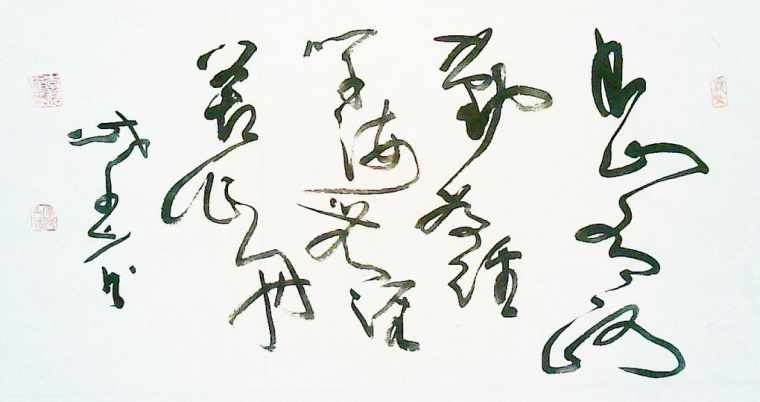 书山有路
勤为径
学海无涯
苦作舟